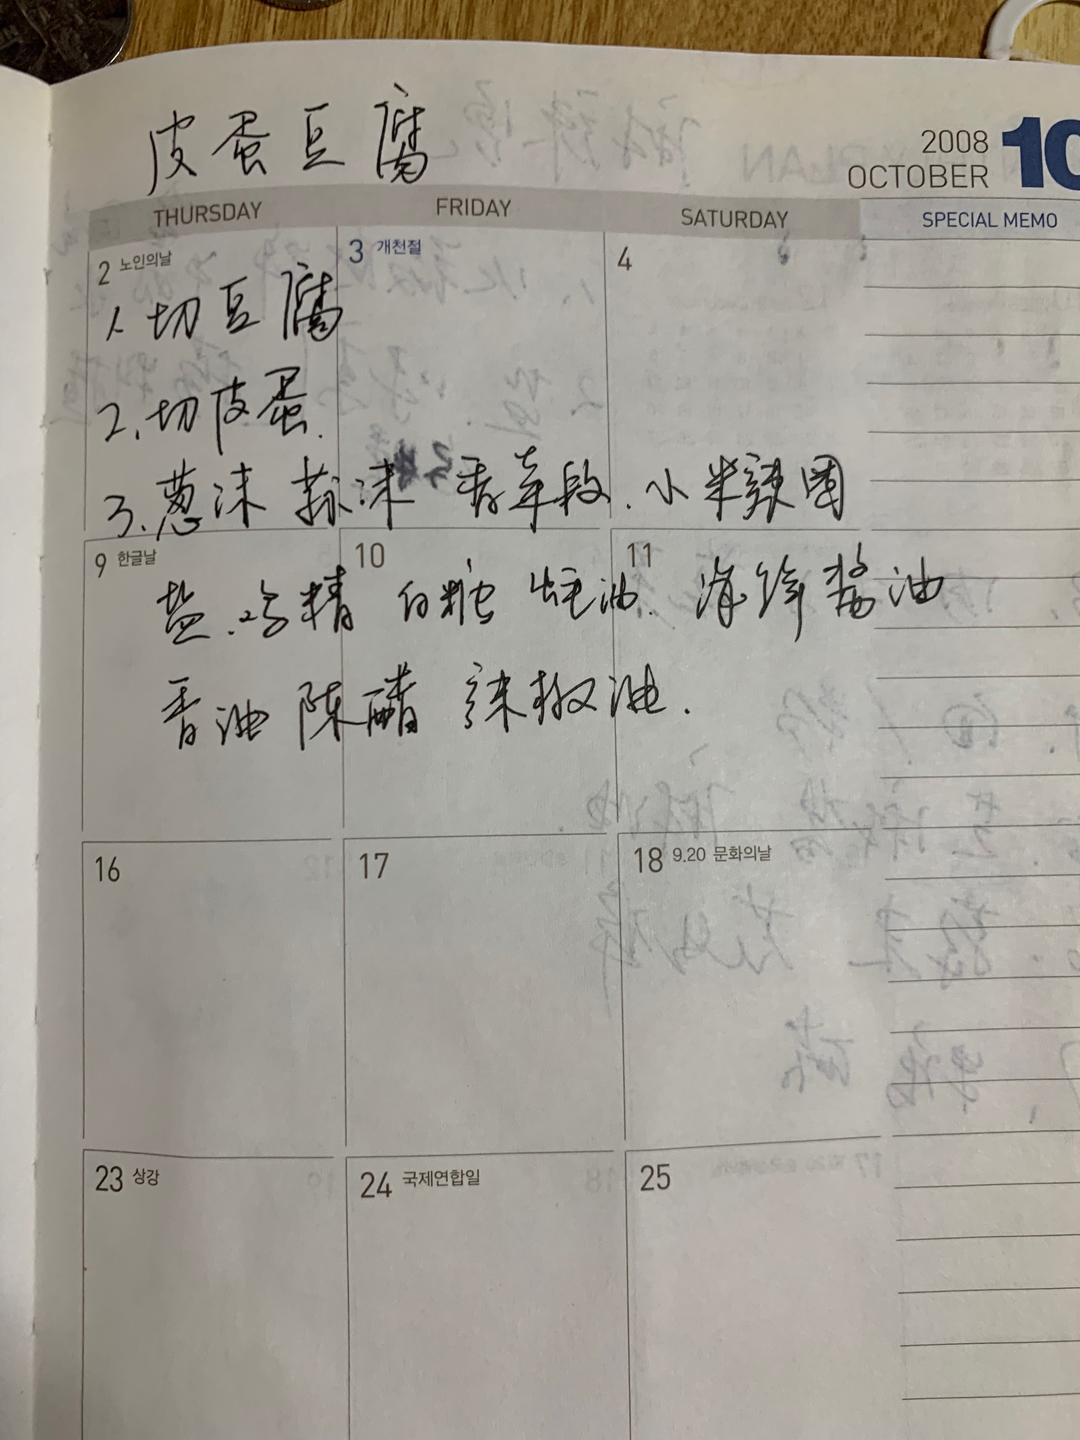 皮蛋豆腐
2008
OCTOBER 10
THURSDAY FRIDAY SATURDAY SPECIAL MEMO
2 노인의날 3 개천절 4
1. 切豆腐
2. 切皮蛋.
3. 葱沫 蒜沫 香菜段. 小米辣圈
9 한글날 10 11
盐. 鸡精 白糖 蚝油. 海鲜酱油
香油 陈醋 辣椒油.
16 17 18 9.20 문화의날
23 상강 24 국제연합일 25